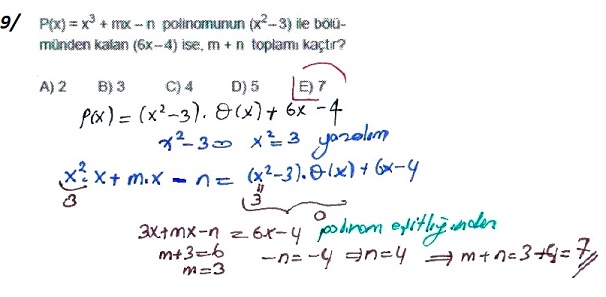 9/ P(x) = x³ + mx – n polinomunun (x² – 3) ile bölü-
münden kalan (6x – 4) ise, m + n toplamı kaçtır?
A) 2 B) 3 C) 4 D) 5 E) 7
P(x) = (x²-3). θ(x) + 6x - 4
x²-3=0 x²=3 yazalım
x².x + m.x - n = (x²-3).θ(x) + 6x-4
3 3
0
3x+mx-n = 6x-4 polinom eşitliğinden
m+3=6 -n=-4 ⇒ n=4 ⇒ m+n=3+4=7
m=3